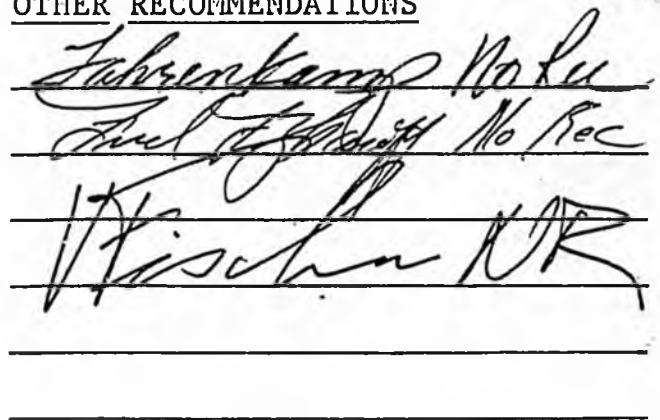 OTHER RECOMMENDATIONS
Fahrenkamp No Rec
No Rec
V Fischer NR